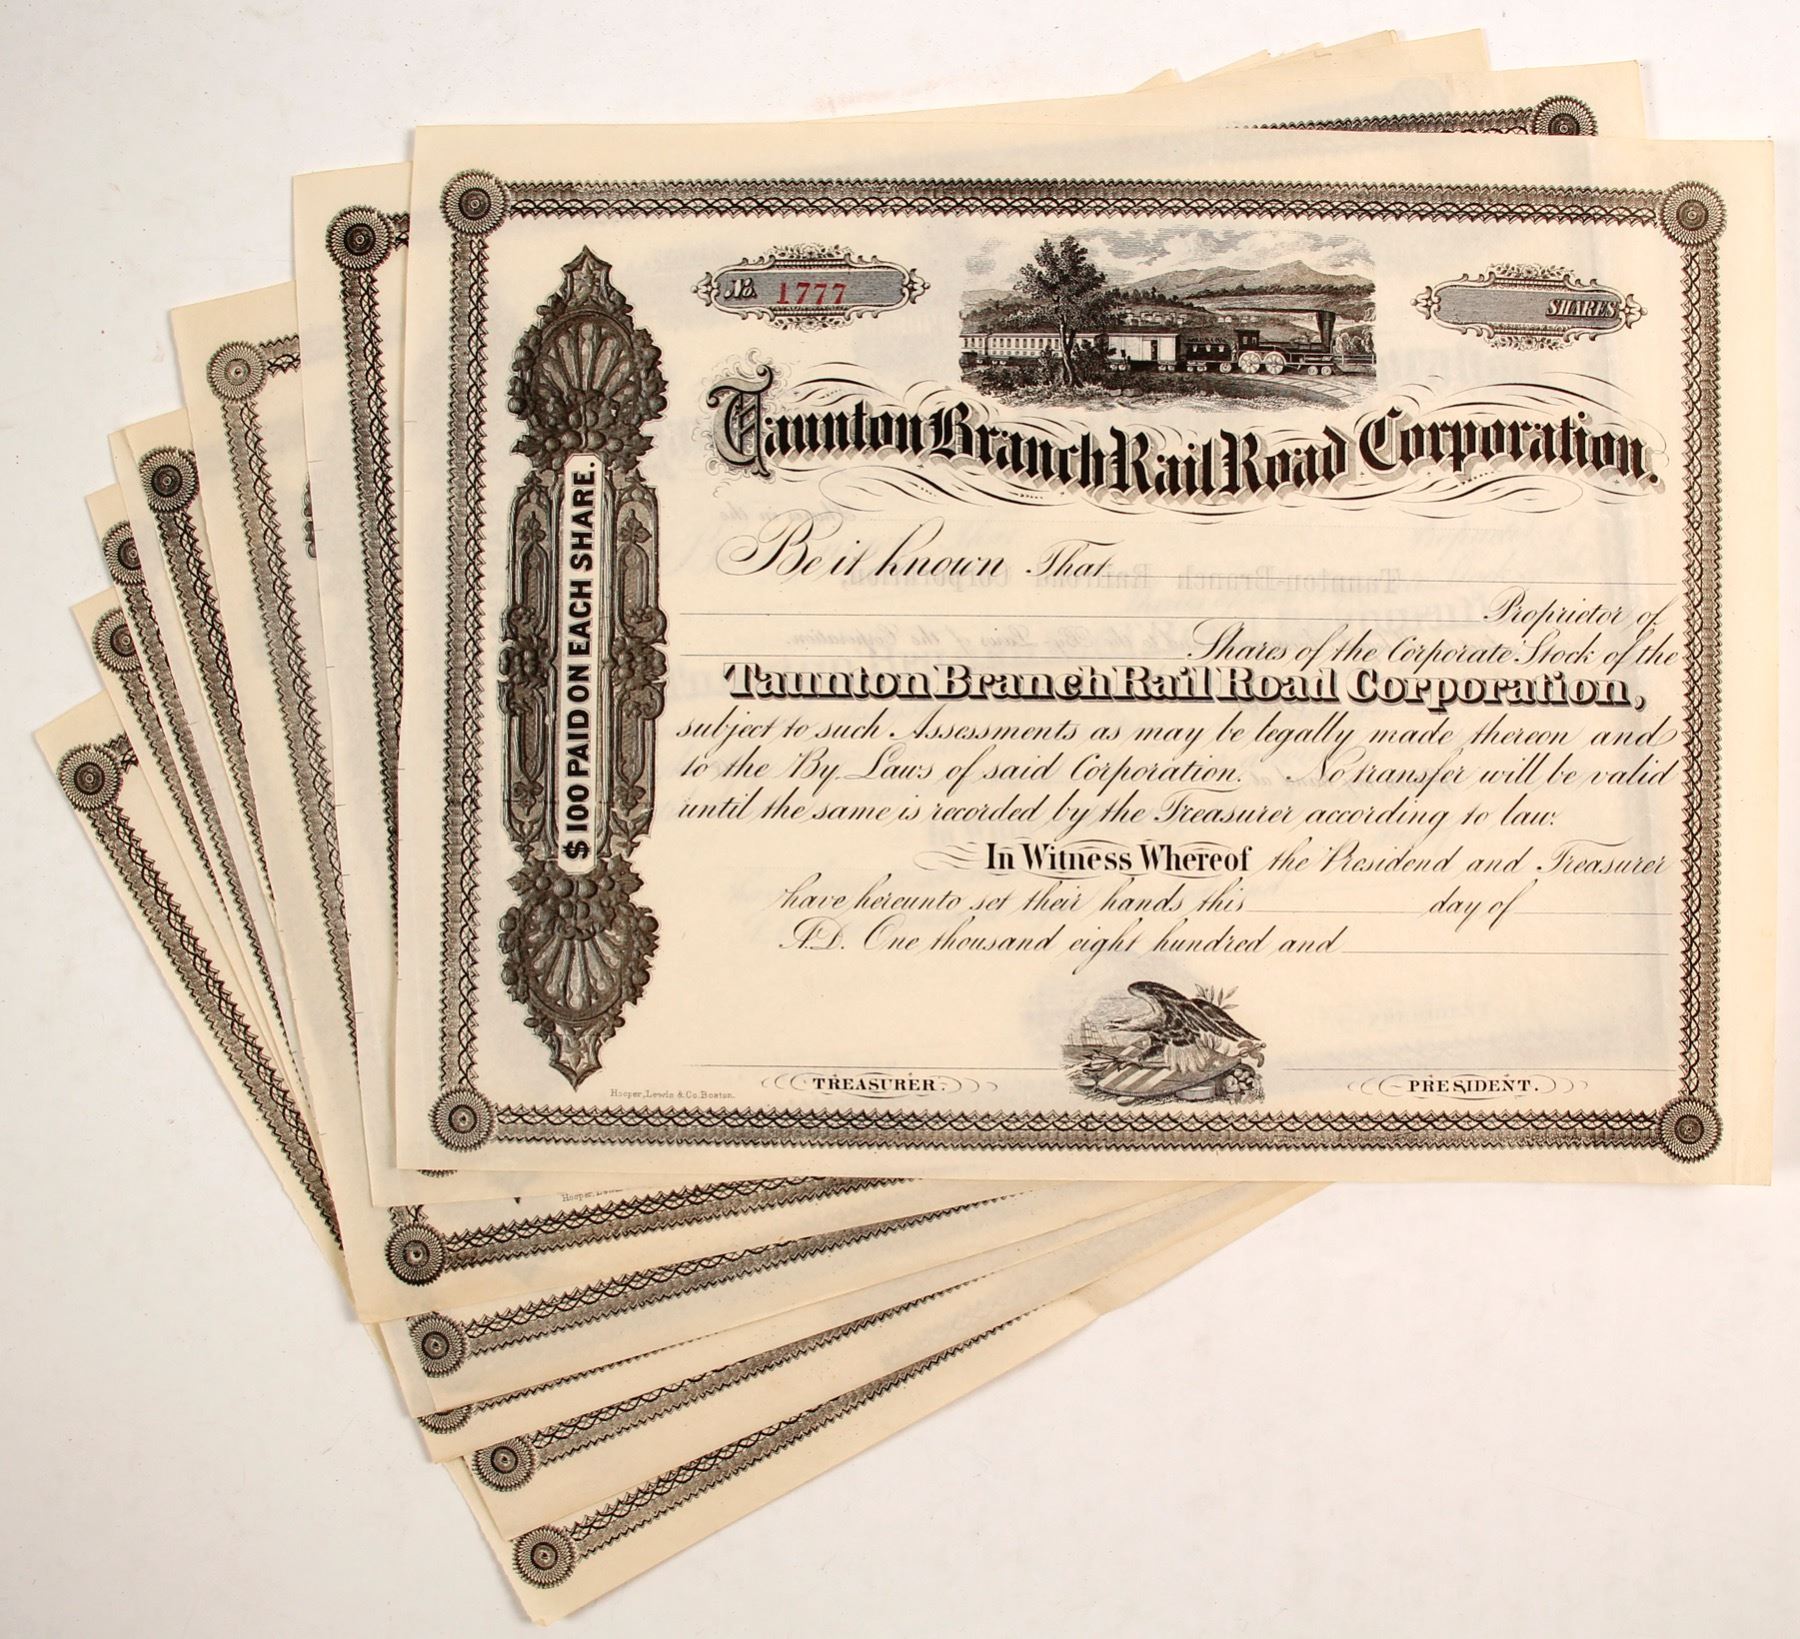 No. 1777
SHARES
Taunton Branch Rail Road Corporation.
$100 PAID ON EACH SHARE.
Be it known That
Proprietor of
Shares of the Corporate Stock of the
Taunton Branch Rail Road Corporation,
subject to such Assessments as may be legally made thereon and
to the By Laws of said Corporation. No transfer will be valid
until the same is recorded by the Treasurer according to law.
In Witness Whereof the Presidend and Treasurer
have hereunto set their hands this day of
A.D. One thousand eight hundred and
TREASURER.
PRESIDENT.
Hooper, Lewis & Co. Boston.
Hooper,